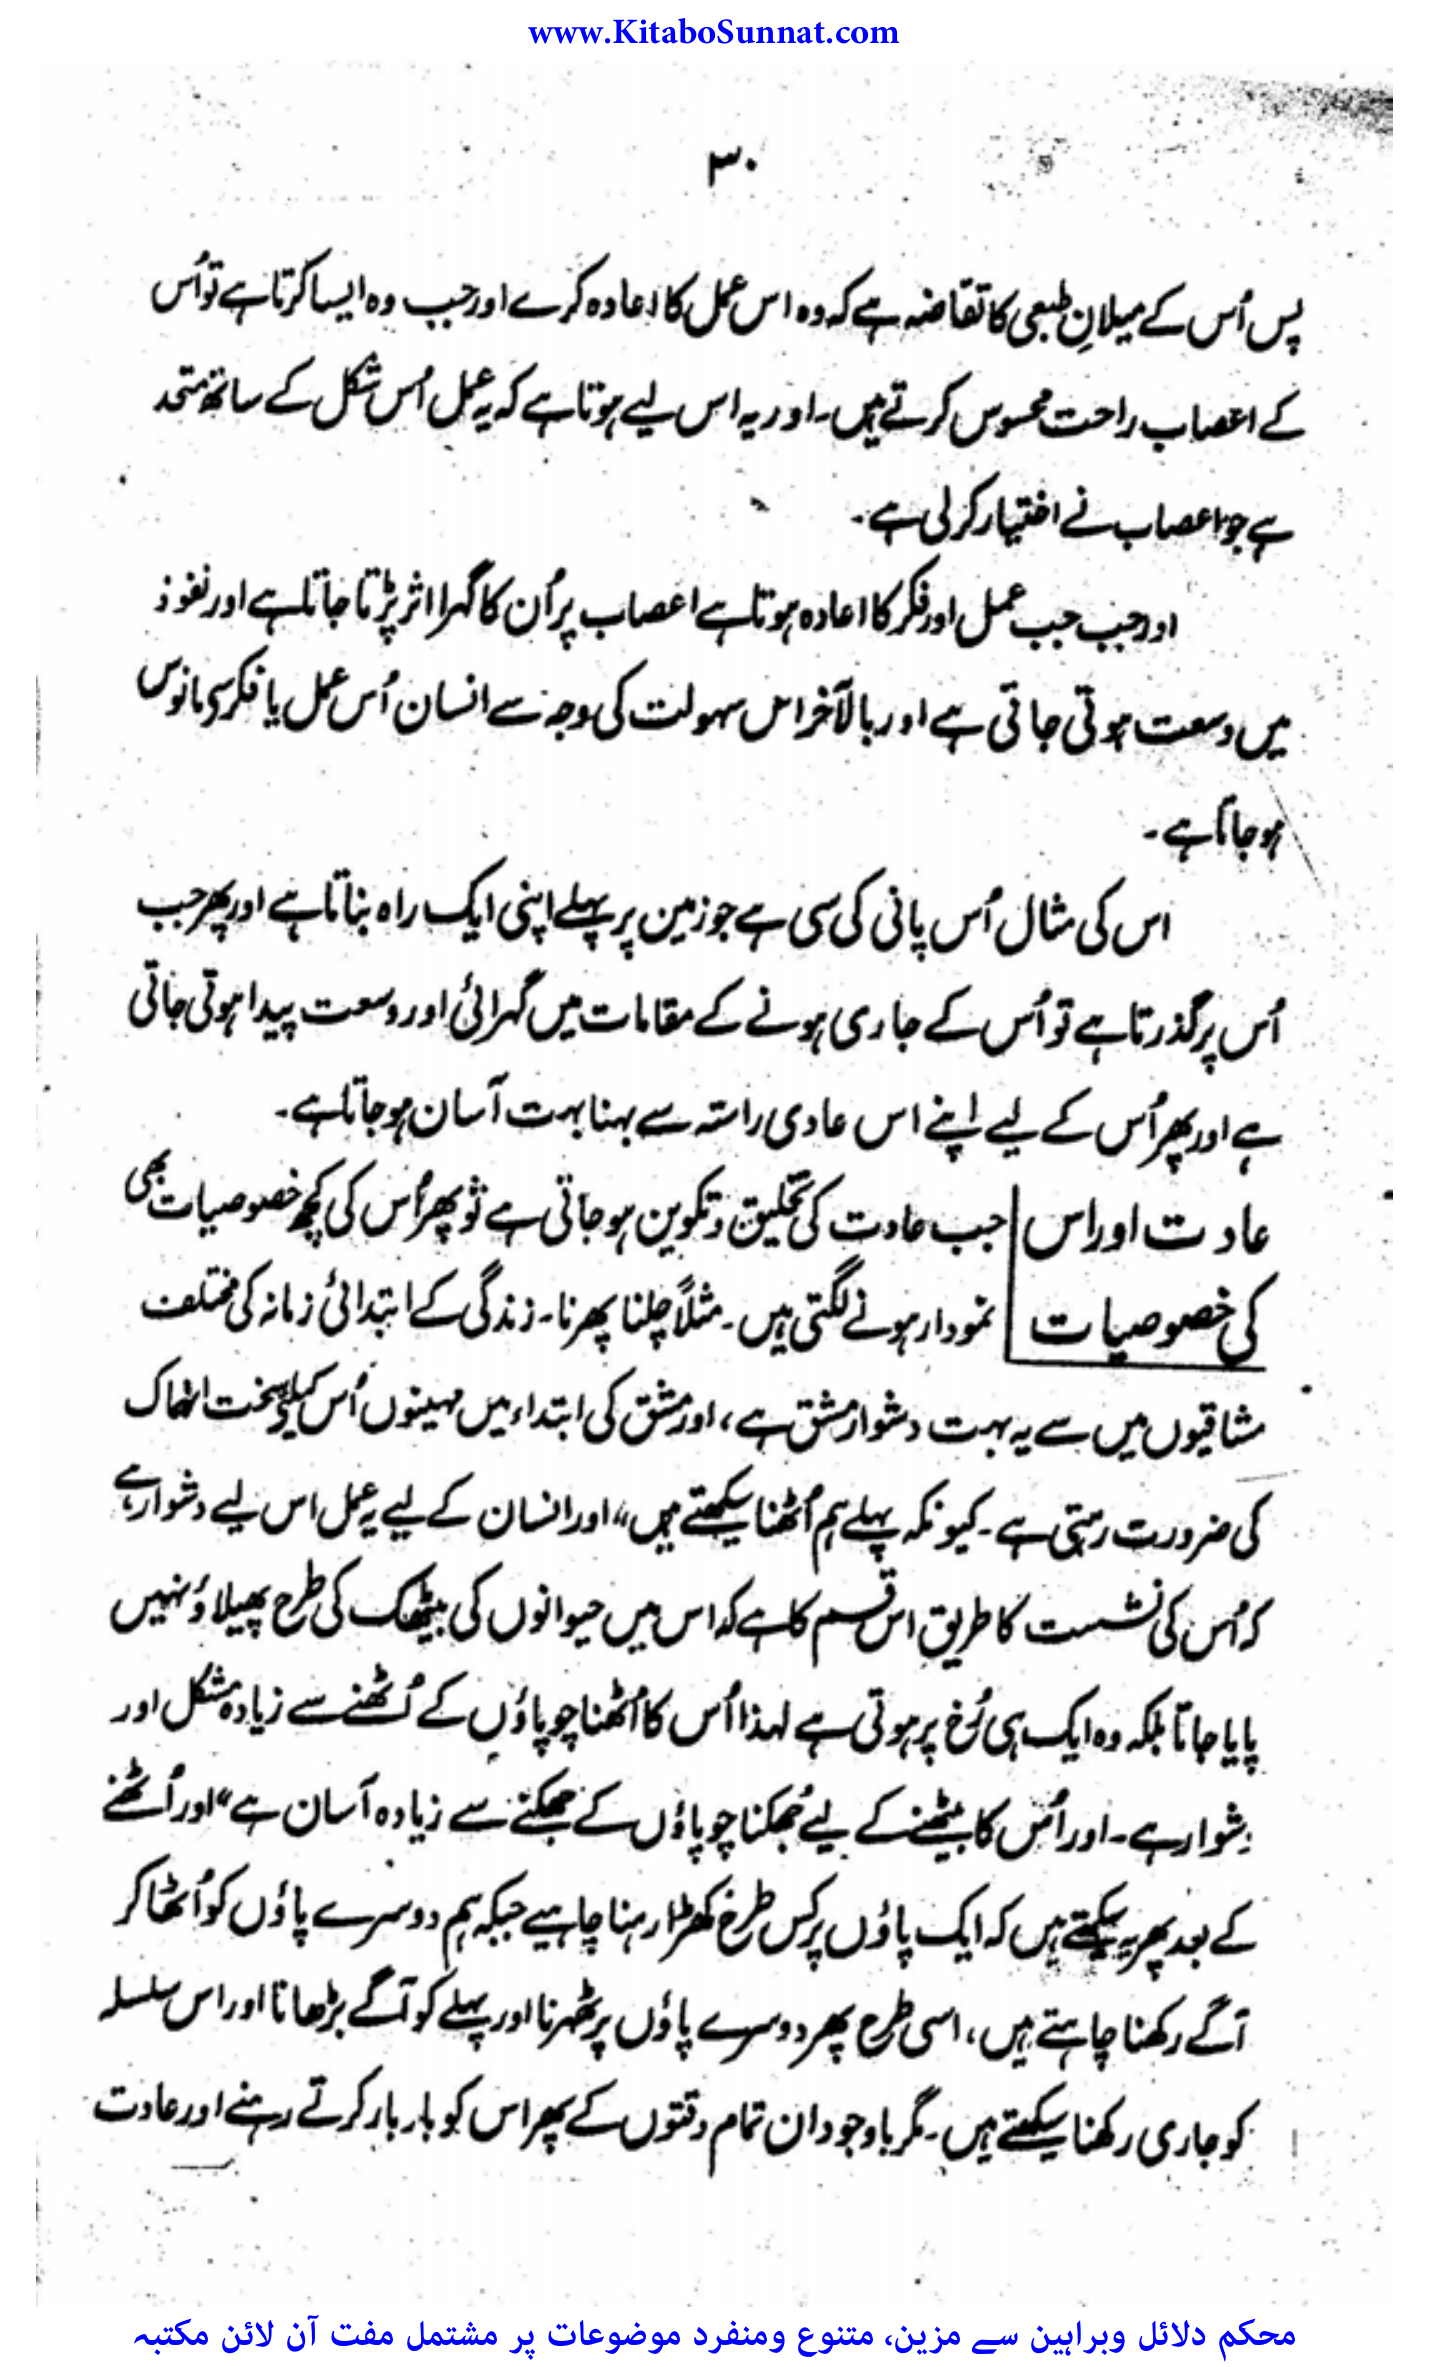 www.KitaboSunnat.com
۳۰
پس اُس کے میلانِ طبعی کا تقاضہ ہے کہ وہ اس عمل کا اعادہ کرے اور جب وہ ایسا کرتا ہے تو اُس
کے اعصاب راحت محسوس کرتے ہیں۔ اور یہ اس لیے ہوتا ہے کہ یہ عمل اُس شکل کے ساتھ متحد
ہے جو اعصاب نے اختیار کر لی ہے۔
اور جب جب عمل اور فکر کا اعادہ ہوتا ہے اعصاب پر اُن کا گہرا اثر پڑتا جاتا ہے اور نفوذ
میں وسعت ہوتی جاتی ہے اور بالآخر اس سہولت کی وجہ سے انسان اُس عمل یا فکر سے مانوس
ہو جاتا ہے۔
اس کی مثال اُس پانی کی سی ہے جو زمین پر پہلے اپنی ایک راہ بناتا ہے اور پھر جب
اُس پر گذرتا ہے تو اُس کے جاری ہونے کے مقامات میں گہرائی اور وسعت پیدا ہوتی جاتی
ہے اور پھر اُس کے لیے اپنے اس عادی راستہ سے بہنا بہت آسان ہو جاتا ہے۔
عادت اور اس جب عادت کی تخلیق و تکوین ہو جاتی ہے تو پھر اُس کی کچھ خصوصیات بھی
کی خصوصیات نمودار ہونے لگتی ہیں۔ مثلاً چلنا پھرنا۔ زندگی کے ابتدائی زمانہ کی مختلف
مشاقیوں میں سے یہ بہت دشوار مشق ہے، اور مشق کی ابتداء میں مہینوں اُس کیلیے سخت انہماک
کی ضرورت رہتی ہے۔ کیونکہ پہلے ہم اُٹھنا سیکھتے ہیں، اور انسان کے لیے یہ عمل اس لیے دشوار ہے
کہ اُس کی نشست کا طریق اس قسم کا ہے کہ اس میں حیوانوں کی بیٹھک کی طرح پھیلاؤ نہیں
پایا جاتا بلکہ وہ ایک ہی رُخ پر ہوتی ہے لہذا اُس کا اُٹھنا چوپاؤں کے اُٹھنے سے زیادہ مشکل اور
دشوار ہے۔ اور اُس کا بیٹھنے کے لیے جُھکنا چوپاؤں کے جھکنے سے زیادہ آسان ہے" اور اُٹھنے
کے بعد پھر یہ سیکھتے ہیں کہ ایک پاؤں پر کس طرح کھڑا رہنا چاہیے جبکہ ہم دوسرے پاؤں کو اُٹھا کر
آگے رکھنا چاہتے ہیں، اسی طرح پھر دوسرے پاؤں پر ٹھہرنا اور پہلے کو آگے بڑھانا اور اس سلسلہ
کو جاری رکھنا سیکھتے ہیں۔ مگر باوجود ان تمام دقتوں کے پھر اس کو بار بار کرتے رہنے اور عادت
محکم دلائل وبراہین سے مزین، متنوع ومنفرد موضوعات پر مشتمل مفت آن لائن مکتبہ